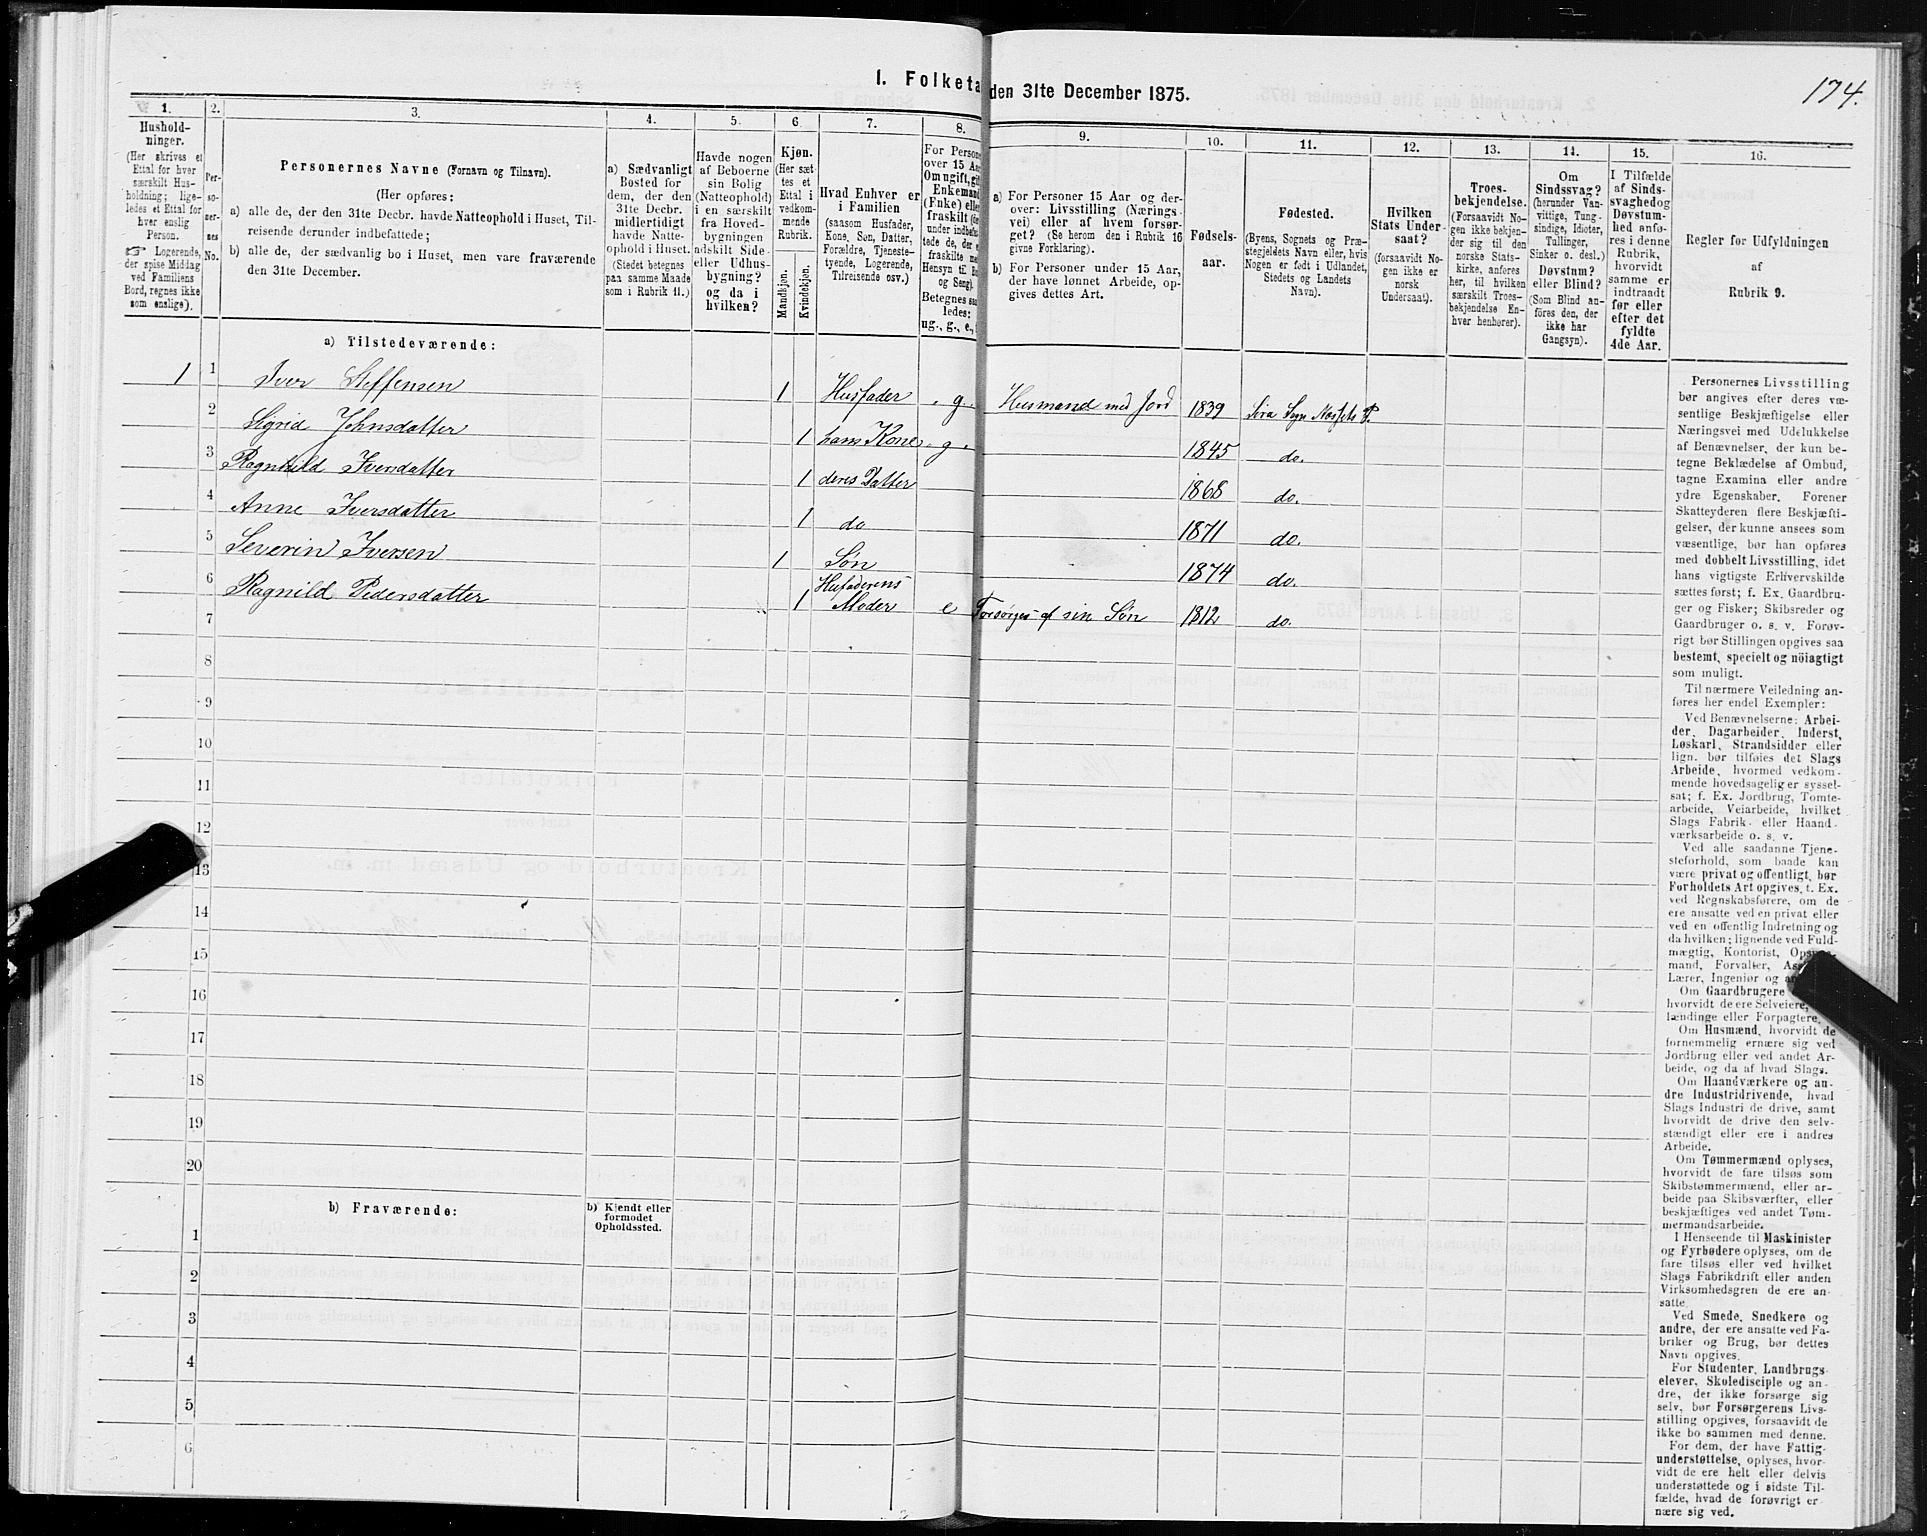 174.
I. Folketa den 31te December 1875.
1. 2. 3. 4. 5. 6. 7. 8. 9. 10. 11. 12. 13. 14. 15. 16.
Hushold-
ninger.
(Her skrives et
Ettal for hver
særskilt Hus-
holdning; lige-
ledes et Ettal for
hver enslig
Person.
☞ Logerende,
der spise Middag
ved Familiens
Bord, regnes ikke
som enslige).
Per-
so-
ner-
nes
No.
Personernes Navne (Fornavn og Tilnavn).
(Her opføres:
a) alle de, der den 31te Decbr. havde Natteophold i Huset, Til-
reisende derunder indbefattede;
b) alle de, der sædvanlig bo i Huset, men vare fraværende
den 31te December.
a) Sædvanligt
Bosted for
dem, der den
31te Decbr.
midlertidigt
havde Natte-
ophold i Huset.
(Stedet betegnes
paa samme Maade
som i Rubrik 11.)
Havde nogen
af Beboerne
sin Bolig
(Natteophold)
i en særskilt
fra Hoved-
bygningen
adskilt Side-
eller Udhus-
bygning?
og da i
hvilken?
Kjøn.
(Her sæt-
tes et
Ettal i
vedkom-
mende
Rubrik.
Mandkjøn.
Kvindekjøn.
Hvad Enhver er
i Familien
(saasom Husfader,
Kone, Søn, Datter,
Forældre, Tjeneste-
tyende, Logerende,
Tilreisende osv.)
For Persone
over 15 Aa
Om ugift, gif
Enkemand
(Enke) elle
fraskilt (de
under indbefa
tede de, der e
fraskilte me
Hensyn til Bo
og Seng).
Betegnes saa
ledes:
ug., g., e.,
a) For Personer 15 Aar og der-
over: Livsstilling (Nærings-
vei) eller af hvem forsør-
get? (Se herom den i Rubrik 16
givne Forklaring).
b) For Personer under 15 Aar,
der have lønnet Arbeide, op-
gives dettes Art.
Fødsels-
aar.
Fødested.
(Byens, Sognets og Præ-
stegjeldets Navn eller, hvis
Nogen er født i Udlandet,
Stedets og Landets
Navn).
Hvilken
Stats Under-
saat?
(forsaavidt No-
gen ikke er
norsk
Undersaat).
Troes-
bekjendelse.
(Forsaavidt No-
gen ikke bekjen-
der sig til den
norske Stats-
kirke, anføres
her, til hvilken
særskilt Troes-
bekjendelse En-
hver henhører).
Om
Sindssvag?
(herunder Van-
vittige, Tung-
sindige, Idioter,
Tullinger,
Sinker o. desl.)
Døvstum?
eller Blind?
(Som Blind an-
føres den, der
ikke har
Gangsyn).
I Tilfælde
af Sinds-
svaghed og
Døvstum-
hed anfø-
res i denne
Rubrik,
hvorvidt
samme er
indtraadt
før eller
efter det
fyldte
4de Aar.
Regler for Udfyldningen
af
Rubrik 9.
a) Tilstedeværende:
1 1 Iver Steffensen 1 Husfader g. Husmand med Jord 1839 Sira Sogn Næssets P.
2 Sigrid Johnsdatter 1 hans Kone g 1845 do.
3 Ragnhild Iversdatter 1 deres Datter 1868 do.
4 Anne Iversdatter 1 do 1871 do.
5 Severin Iversen 1 Søn 1874 do.
6 Ragnild Pedersdatter 1 Husfaderens Moder e Forsørges af sin Søn 1812 do.
7
8
9
10
11
12
13
14
15
16
17
18
19
20
b) Fraværende:
b) Kjendt eller
formodet
Opholdssted.
1
2
3
4
5
6
Personernes Livsstilling
bør angives efter deres væ-
sentlige Beskjæftigelse eller
Næringsvei med Udelukkelse
af Benævnelser, der kun be-
tegne Beklædelse af Ombud,
tagne Examina eller andre
ydre Egenskaber. Forener
Skatteyderen flere Beskjæfti-
gelser, der kunne ansees som
væsentlige, bør han opføres
med dobbelt Livsstilling, idet
hans vigtigste Erhvervskilde
sættes først; f. Ex. Gaardbru-
ger og Fisker; Skibsreder og
Gaardbruger o. s. v. Forøv-
rigt bør Stillingen opgives saa
bestemt, specielt og nöiagtigt
som muligt.
Til nærmere Veiledning an-
føres her endel Exempler:
Ved Benævnelserne: Arbei-
der, Dagarbeider, Inderst,
Løskarl, Strandsidder eller
lign. bør tilføies det Slags
Arbeide, hvormed vedkom-
mende hovedsagelig er syssel-
sat; f. Ex. Jordbrug, Tomte-
arbeide, Veiarbeide, hvilket
Slags Fabrik- eller Haand-
værksarbeide o. s. v.
Ved alle saadanne Tjene-
steforhold, som baade kan
være privat og offentligt, bør
Forholdets Art opgives, t. Ex.
ved Regnskabsførere, om de
ere ansatte ved en privat eller
ved en offentlig Indretning og
da hvilken; lignende ved Fuld-
mægtig, Kontorist, Opsyns-
mand, Forvalter, As
Lærer, Ingeniør og an
Om Gaardbrugere
hvorvidt de ere Selveiere,
lændinge eller Forpagtere.
Om Husmænd, hvorvidt de
fornemmelig ernære sig ved
Jordbrug eller ved andet Ar-
beide, og da af hvad Slags.
Om Haandværkere og an-
dre Industridrivende, hvad
Slags Industri de drive, samt
hvorvidt de drive den selv-
stændigt eller ere i andres
Arbeide.
Om Tømmermænd oplyses,
hvorvidt de fare tilsøs som
Skibstømmermænd, eller ar-
beide paa Skibsværfter, eller
beskjæftiges ved andet Tøm-
mermandsarbeide.
I Henseende til Maskinister
og Fyrbødere oplyses, om de
fare tilsøs eller ved hvilket
Slags Fabrikdrift eller anden
Virksomhedsgren de ere an-
satte.
Ved Smede, Snedkere og
andre, der ere ansatte ved Fa-
briker og Brug, bør dettes
Navn opgives.
For Studenter, Landbrugs-
elever, Skoledisciple og an-
dre, der ikke forsørge sig
selv, bør Forsørgerens Livs-
stilling opgives, forsaavidt de
ikke bo sammen med denne.
For dem, der have Fattig-
understøttelse, oplyses, hvor-
vidt de ere helt eller delvis
understøttede og i sidste Til-
fælde, hvad de forøvrigt er-
nære sig ved.